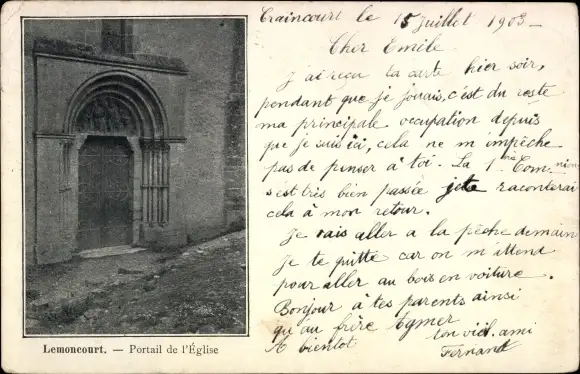 Craincourt le 15 juillet 1903 —
Cher Emile
J'ai reçu ta carte hier soir,
pendant que je jouais, c'est du reste
ma principale occupation depuis
que je suis ici, cela ne m'impêche
pas de penser à toi. La 1ère Com.nion
s'est très bien passée je te raconterai
cela à mon retour.
Je vais aller a la pêche demain
Je te quitte car on m'attend
pour aller au bois en voiture.
Bonjour à tes parents ainsi
qu'au frère
ton viel. ami
A bientot
Fernand
Lemoncourt. — Portail de l'Église